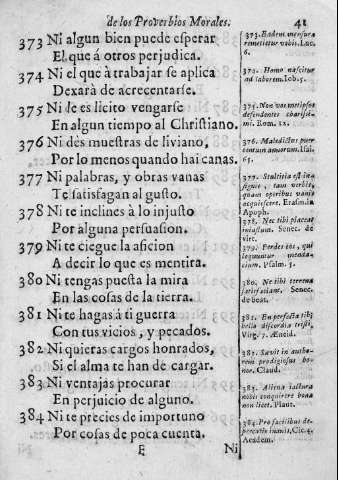 de los Proverbios Morales. 41
373 Ni algun bien puede esperar
El que á otros perjudica.
374 Ni el que à trabajar se aplica
Dexarà de acrecentarse.
375 Ni le es licito vengarse
En algun tiempo al Christiano.
376 Ni des muestras de liviano,
Por lo menos quando hai canas.
377 Ni palabras, y obras vanas
Te satisfagan al gusto.
378 Ni te inclines à lo injusto
Por alguna persuasion.
379 Ni te ciegue la aficion
A decir lo que es mentira.
380 Ni tengas puesta la mira
En las cosas de la tierra.
381 Ni te hagas á tì guerra
Con tus vicios, y pecados.
382 Ni quieras cargos honrados,
Si el alma te han de cargar.
383 Ni ventajas procurar
En perjuicio de alguno.
384 Ni te precies de importuno
Por cosas de poca cuenta.
E Ni
373. Eadem mensura
remetietur vobis. Luc.
6.
374. Homo nascitur
ad laborem. Iob. 5.
375. Non vosmetipsos
defendentes charissi-
mi. Rom. 12.
376. Maledictus puer
centum annorum. Isai.
65.
377. Stultitia est in-
signis, tam verbis,
quam operibus vanis
acquiescere. Erasm. in
Apoph.
378. Nec tibi placeat
iniustum. Senec. de
virt.
379. Perdes eos, qui
loquuntur menda-
cium. Psalm. 5.
380. Ne tibi terrena
satisfaciant. Senec.
de beat.
381. En perfecta tibi
bella discordia tristi.
Virg. 7. Æneid.
382.
nor. Claud.
383. Aliena iactura
nobis conquirere bona
non licet. Plaut.
384. Pro facilibus
Cic. 4.
Academ.